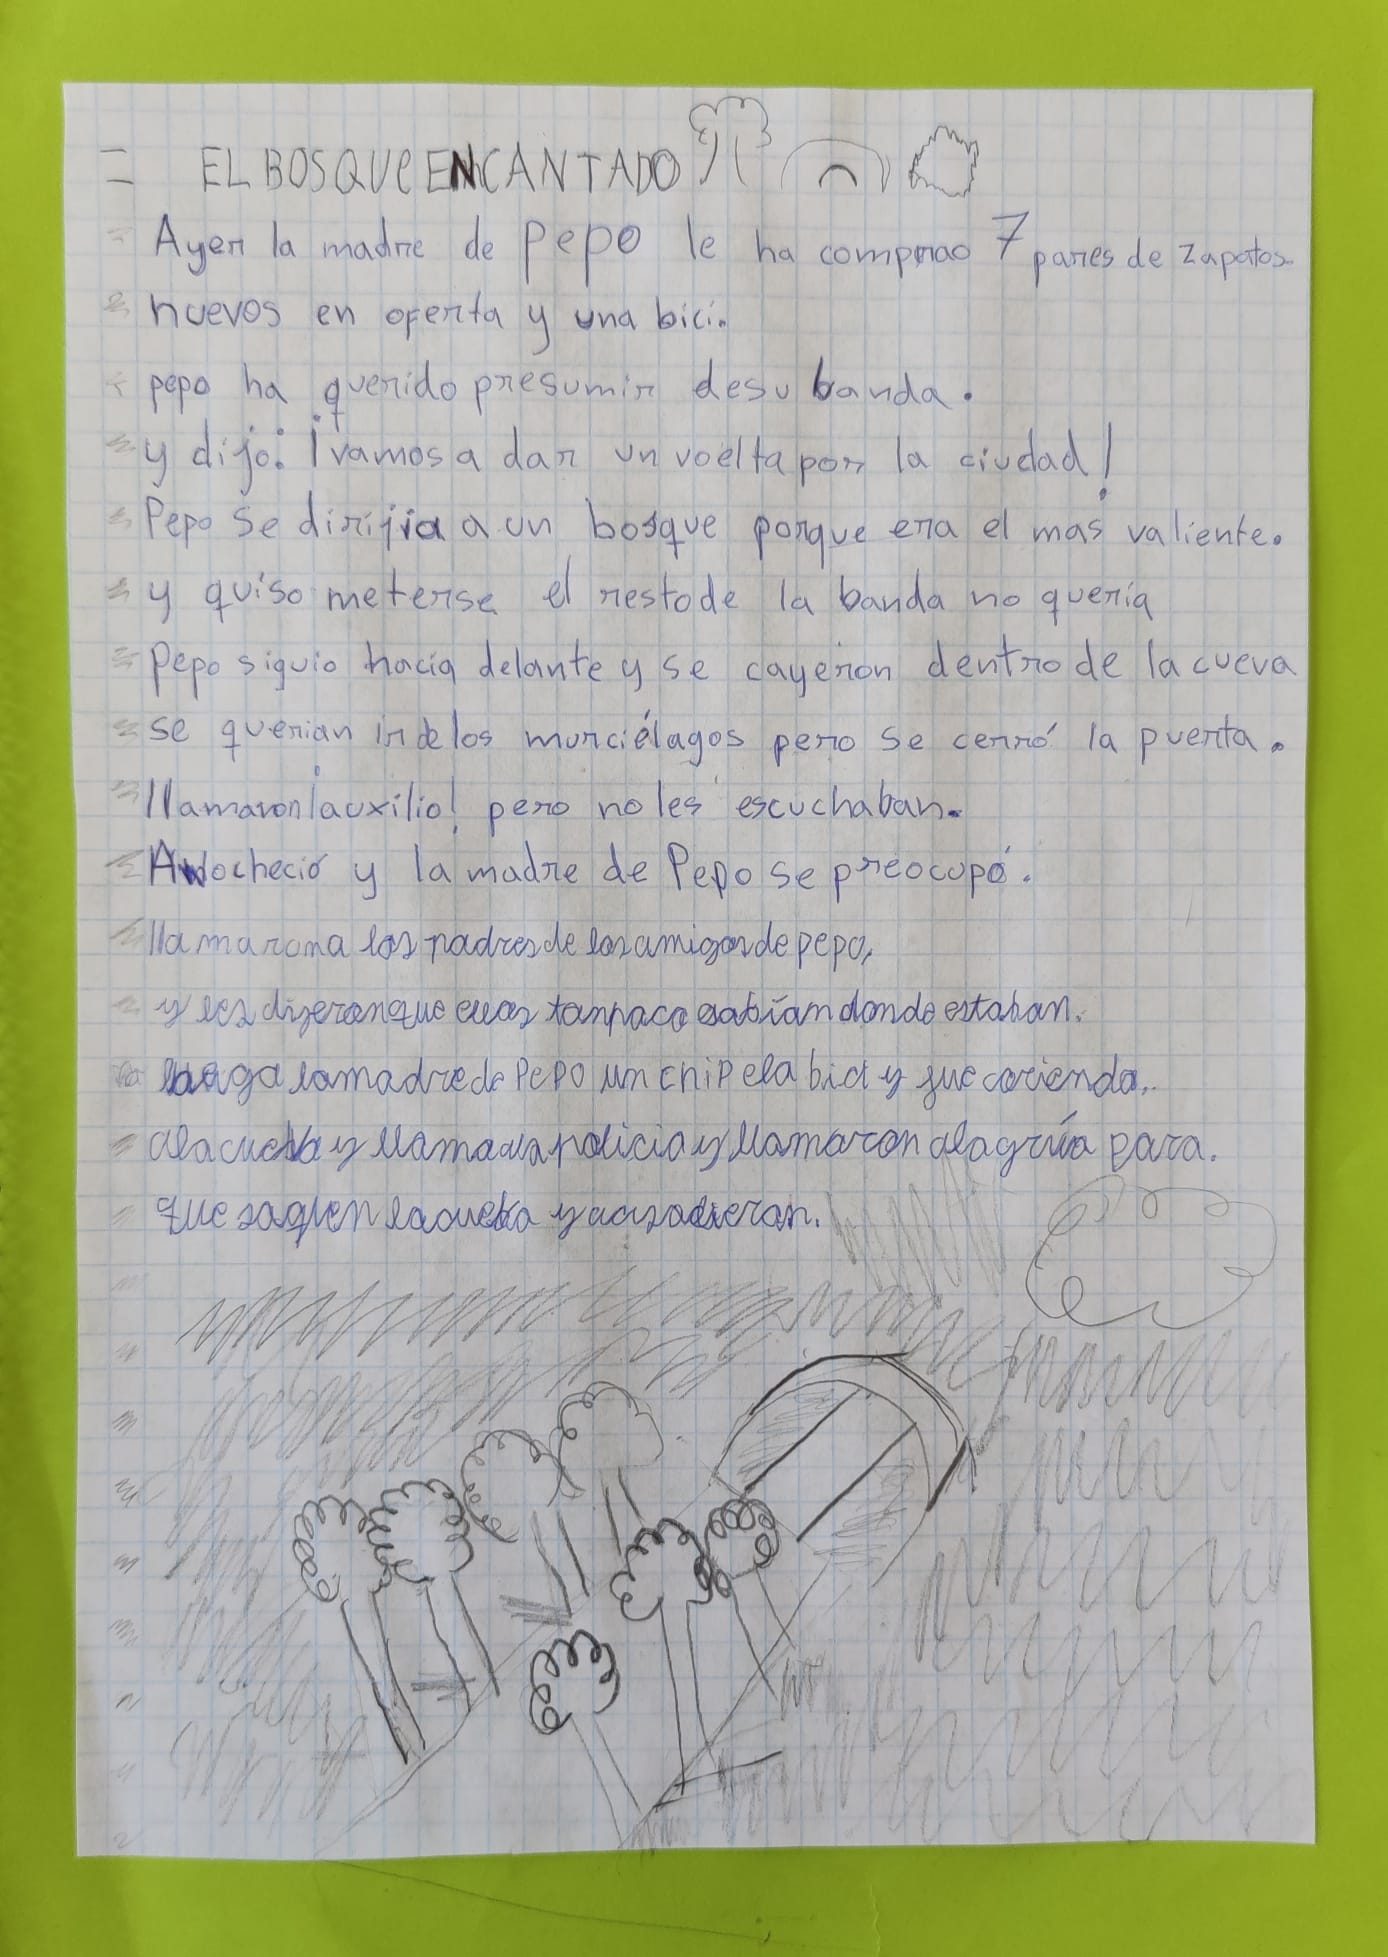 EL BOSQUE ENCANTADO
Ayer la madre de Pepo le ha comprao 7 pares de zapatos
nuevos en oferta y una bici.
pepo ha querido presumir desu banda.
y dijo: ¡vamos a dar un voelta por la ciudad!
Pepo se dirijia a un bosque porque era el mas valiente.
y quiso meterse el resto de la banda no quería
Pepo siguio hacia delante y se cayeron dentro de la cueva
se querian ir de los murciélagos pero se cerró la puerta.
llamaron ¡auxilio! pero no les escuchaban.
Anocheció y la madre de Pepo se preocupó.
llamaron a los padres de los amigos de pepo,
y les dijeron que tanpoco sabían donde estaban.
la madre de Pepo un chip e la bici y fue coriendo.
a la cueba y llama a la policia y llamaron a la grúa para.
que saquen la cueba